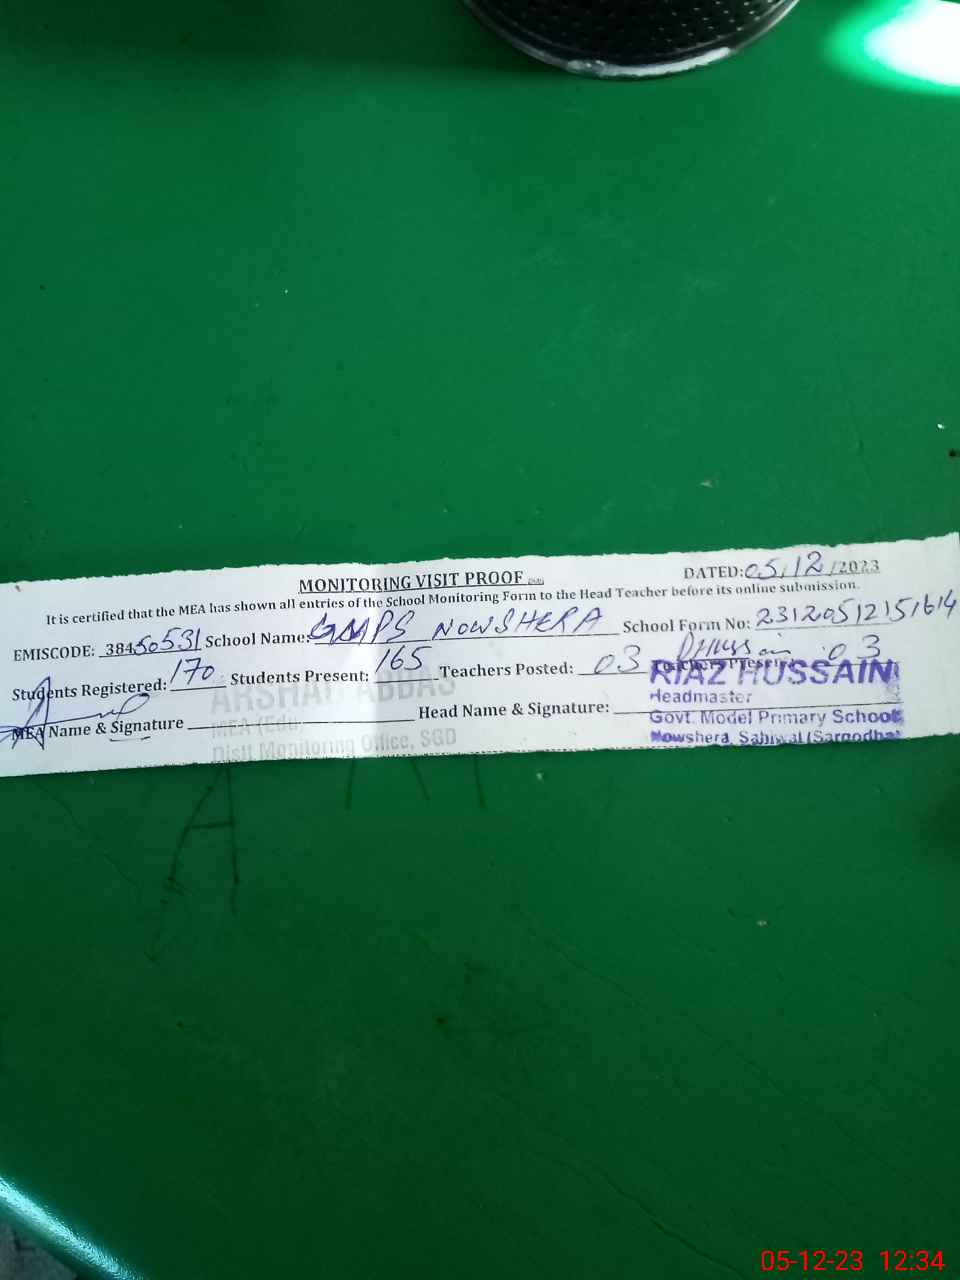 MONITORING VISIT PROOF
DATED: 05/12/2023
It is certified that the MEA has shown all entries of the School Monitoring Form to the Head Teacher before its online submission.
EMISCODE: 38450531 School Name: GMPS NOWSHERA School Form No: 23120512151614
Students Registered: 170 Students Present: 165 Teachers Posted: 03 Teachers Present: 03
ARSHAD ABBAS
RIAZ HUSSAIN
Headmaster
MEA Name & Signature Head Name & Signature:
MEA (Edu)
Govt. Model Primary School
Distt Monitoring Office, SGD
Nowshera, Sahiwal (Sargodha)
05-12-23 12:34